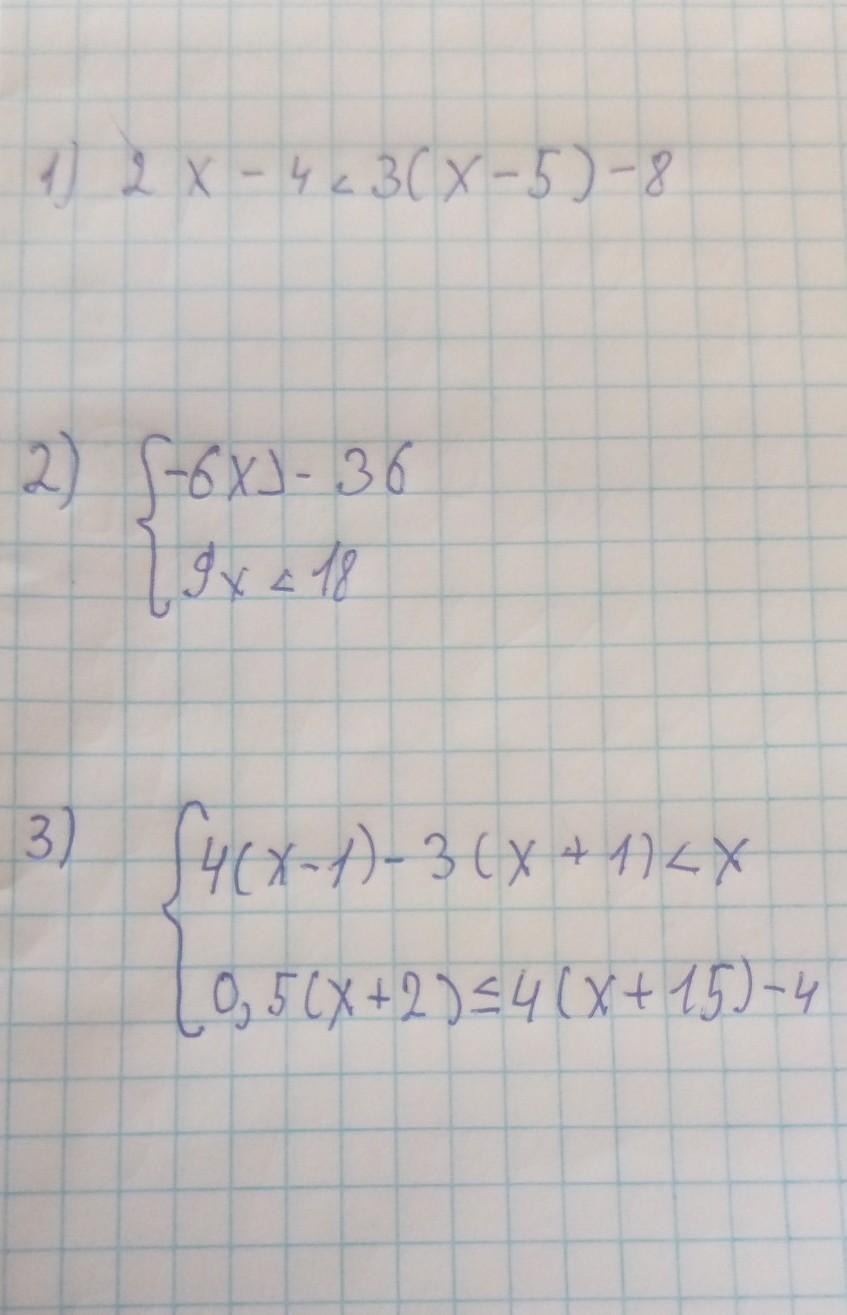 1) 2x - 4 < 3(x - 5) - 8
2) { -6x > - 36
9x < 18
3) { 4(x - 1) - 3(x + 1) < x
0,5(x + 2) ≤ 4(x + 15) - 4